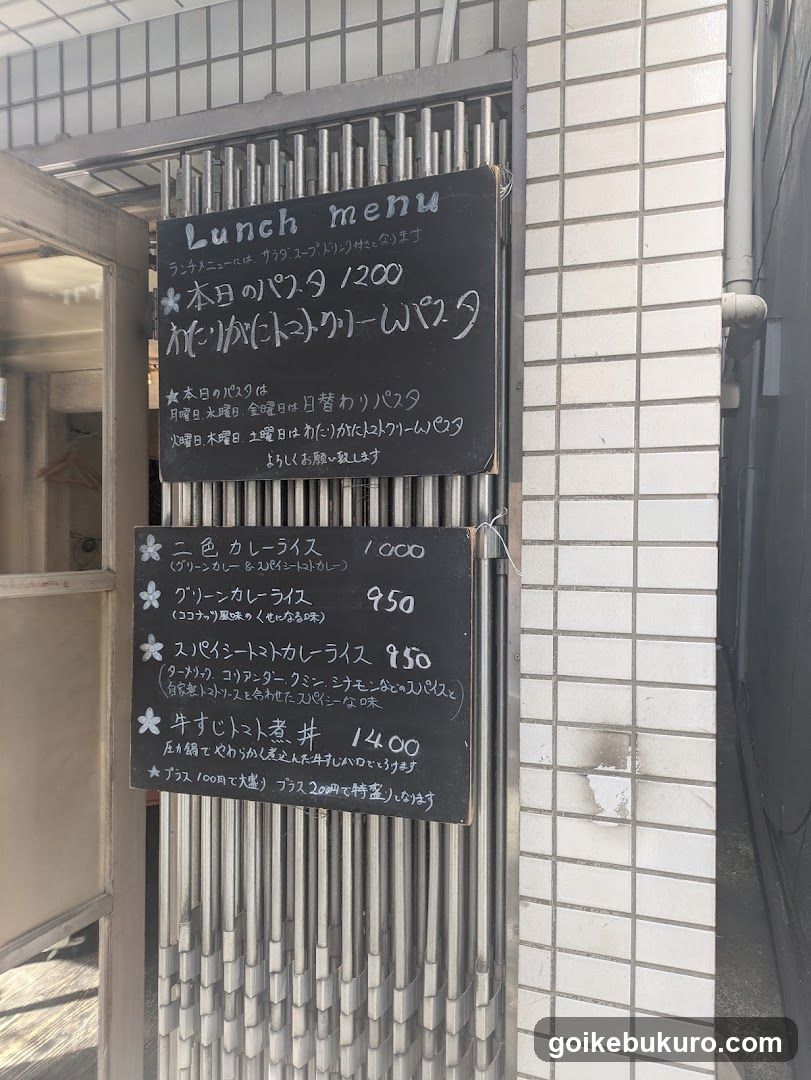 Lunch menu
ランチメニューには、サラダ、スープ、ドリンク付きとなります
本日のパスタ 1200
わたりがにトマトクリームパスタ
★本日のパスタは
月曜日、水曜日、金曜日は日替わりパスタ
火曜日、木曜日、土曜日はわたりがにトマトクリームパスタ
よろしくお願い致します
二色カレーライス 1000
(グリーンカレー & スパイシートマトカレー)
グリーンカレーライス 950
(ココナッツ風味のくせになる味)
スパイシートマトカレーライス 950
(ターメリック、コリアンダー、クミン、シナモンなどのスパイスと
自家製トマトソースを合わせたスパイシーな味)
牛すじトマト煮丼 1400
圧力鍋でやわらかく煮込んだ牛すじが口でとろけます
★プラス100円で大盛り プラス200円で特盛りとなります
goikebukuro.com